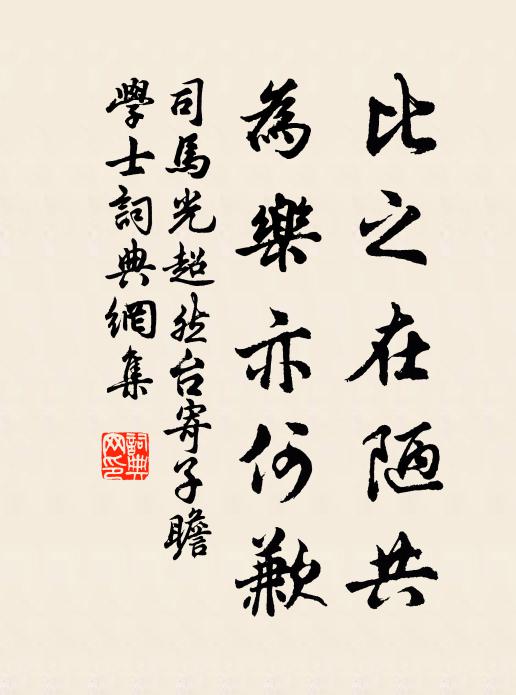 比之在陋共
為樂亦何歉
司馬光超然台寄子瞻
學士詞典網集
詞典網印